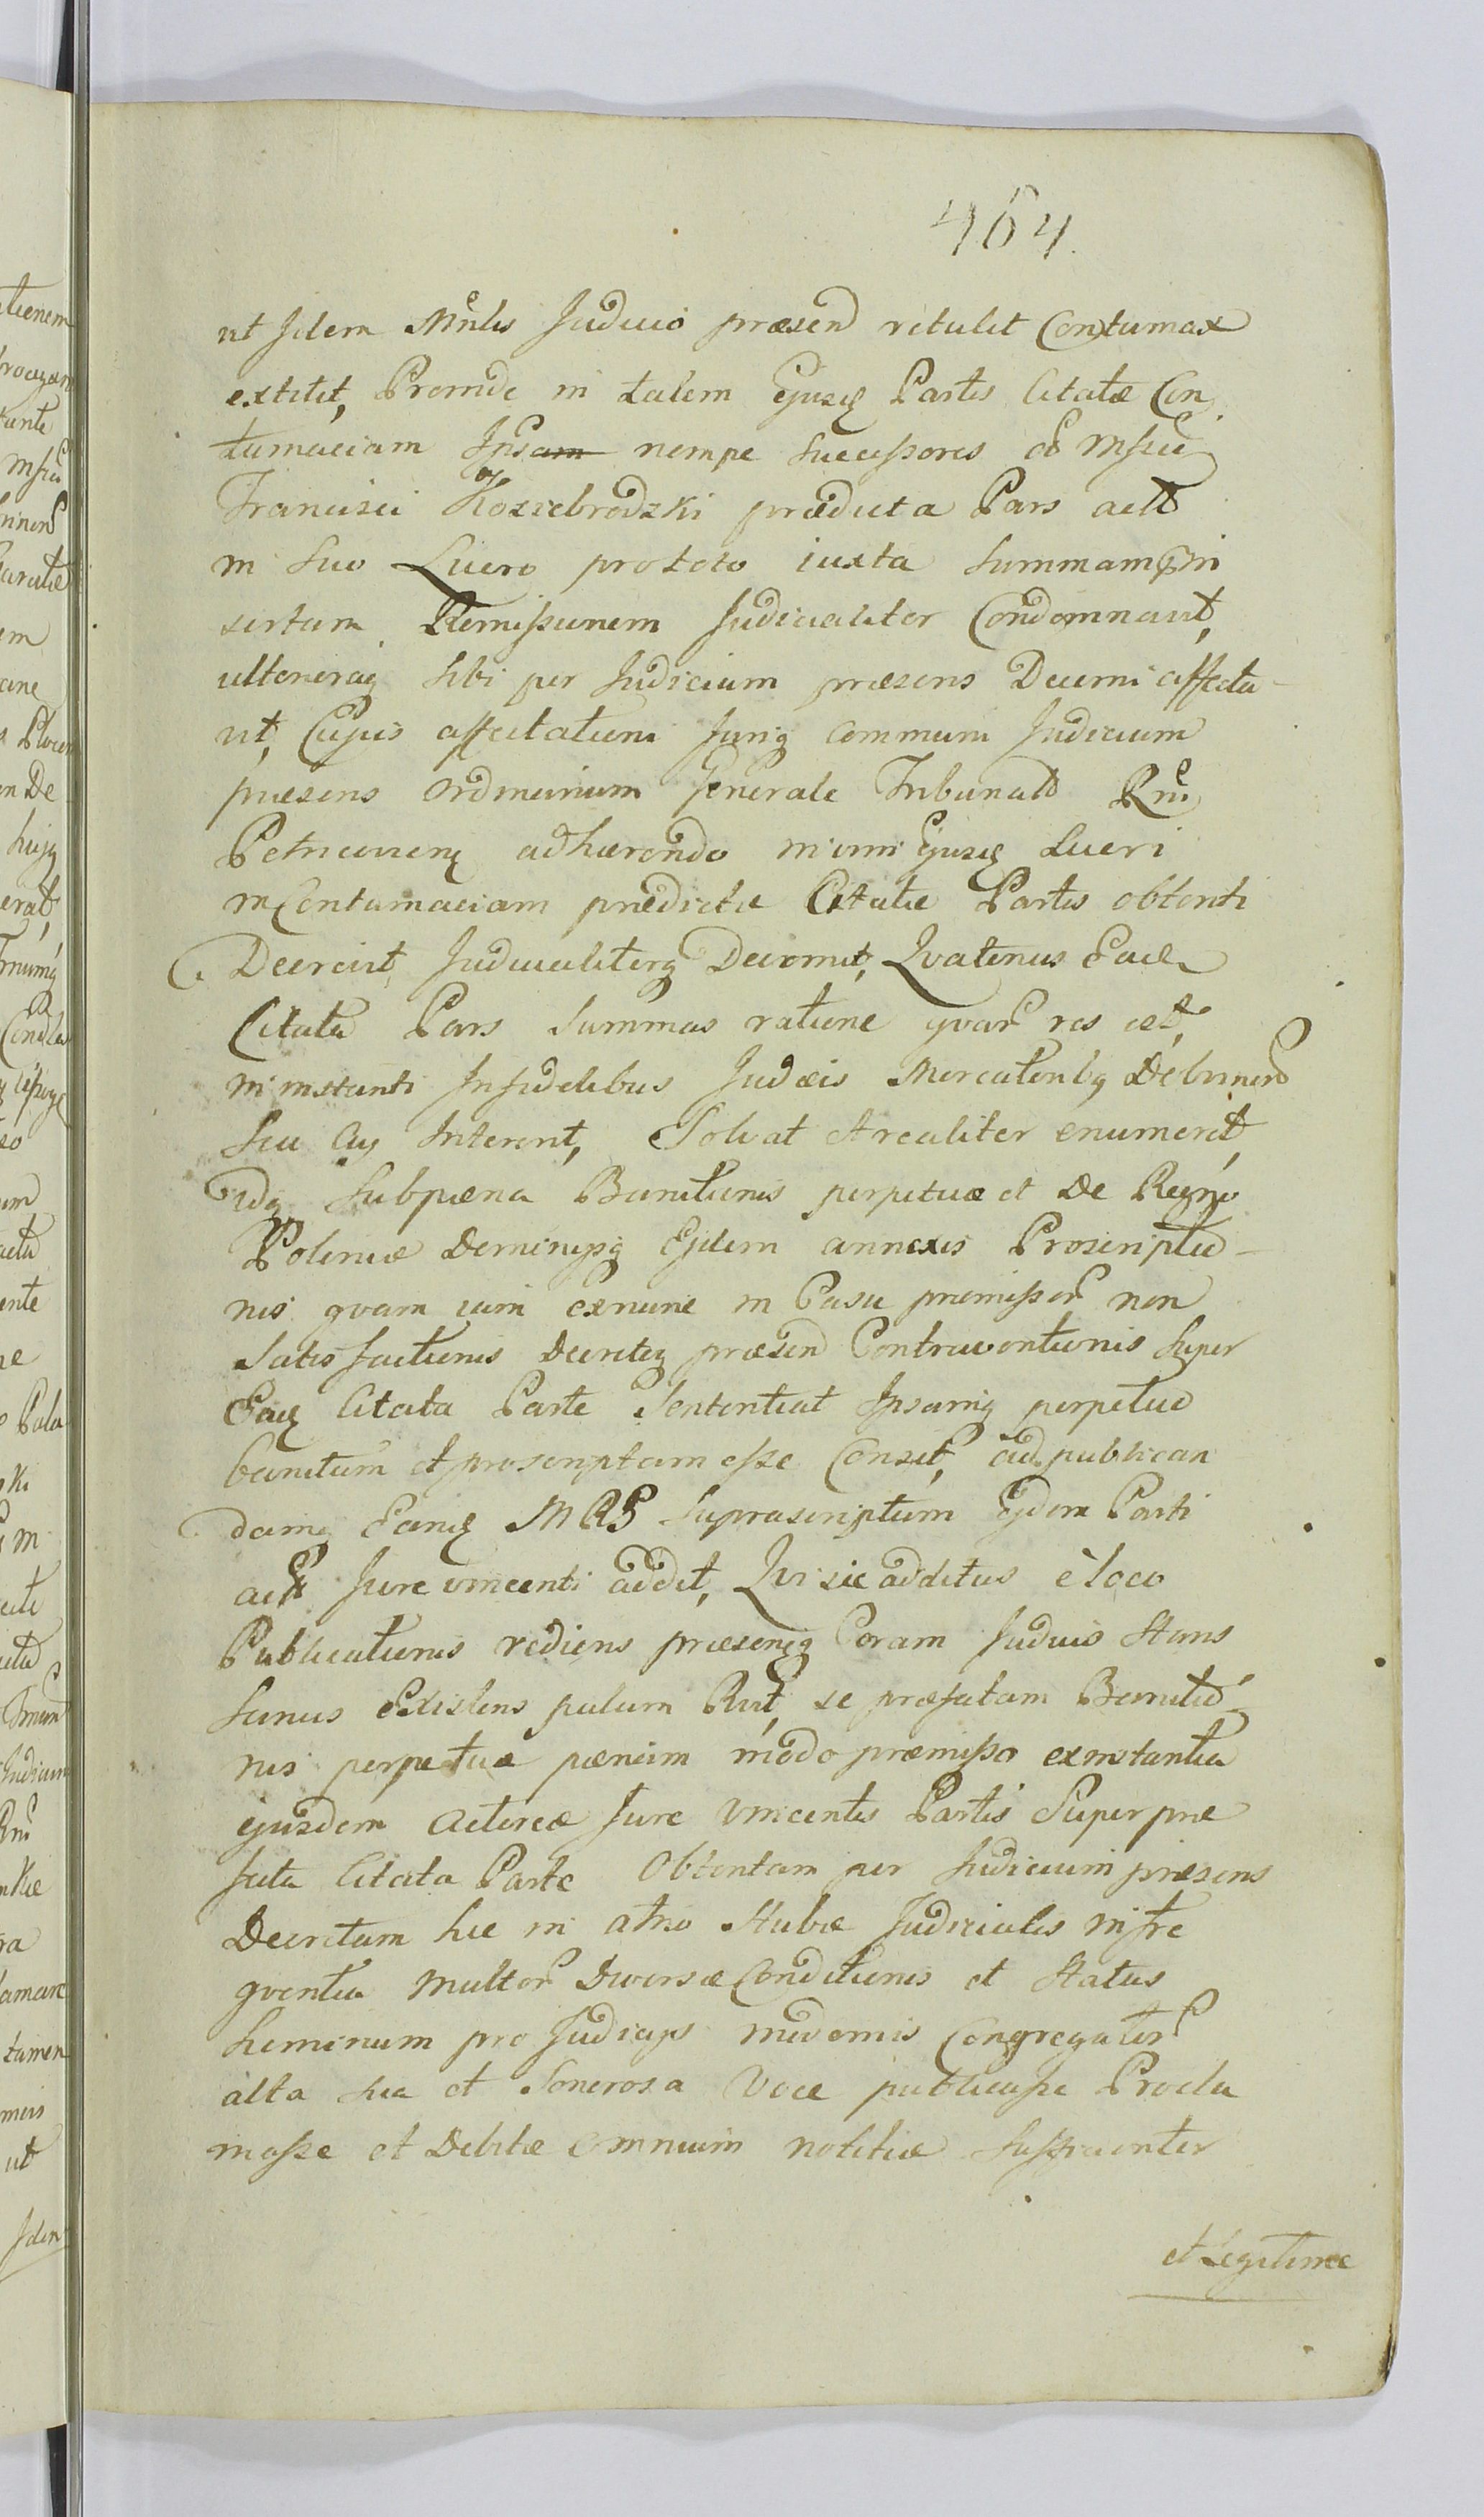 464.
ut Idem Mnlis Judicio praesend retulit Contumax
extitit, Proinde in talem Ejusq Partis Citatae Con
tumaciam Ipsam nempe Successores
Francisci Koziebrodzki praedicta Pars act
in Suo Lucro pro toto iuxta Summam in
sertam Remissionem Judicialiter Condemnavit,
ulterioraq Sibi per Judicium praesens Decerni affecta
vit, Cujus affectationi Juriq communi Judicium
praesens Ordinarium Generale Tribunal Rni
Petricovien adhaerendo Ejusq Lucri
in Contumaciam praedictae Citatae Partis obtenti
Decrevit, Judicialiterq Decernit, Qvatenus Eade
Citata Pars Summas ratione qvar res est,
in instanti Infidelibus Judaeis Mercatoribq Debitined
Seu Intererit, Solvat et realiter enumeret,
idq Sub paena Banitionis perpetuae et De Regno
Poloniae Dominijsq Ejdem annexis Proscriptio
nis qvam iam exnunc in Casu praemissor non
Satisfactionis Decretiq praesend Contraventionis Super
Eadq Citata Parte Sententiat Ipsamq perpetuo
banitam et proscriptam esse Censet, ad publican
damq Eandq MRG Suprascriptum Ejdem Parti
act Jure vincenti addit, Qvi sic additus è loco
Publicationis rediens praesensq Coram Judicio Stans
Sanus Existens palam Rvit, se praefatam Banitio
nis perpetuae paenam modo praemisso exinstantia
ejusdem Actoreae Jure vincentis Partis Super prae
fata Citata Parte Obtentam per Judicium praesens
Decretam hic in atrio Stubae Judicialis in fre
qventia Multor Diversae Conditionis et Status
Hominum pro Judicijs modernis Congregator
alta sua et Sonorosa Voce publicasse Procla
masse et Debitae omnium notitiae Sufficienter
et Legitime